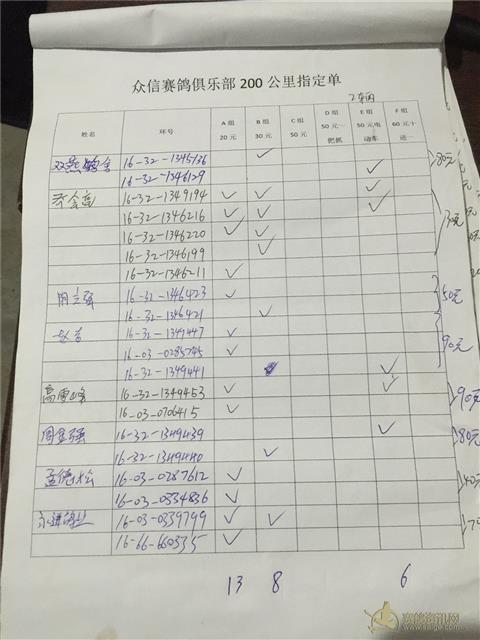 众信赛鸽俱乐部 200 公里指定单
2辆
姓名 环号 A 组 20 元 B 组 30 元 C 组 50 元 D 组 50 元一把抓 E 组 50 元电动车 F 组 60 元十进一
双燕鸽舍 16-32-1345136 ✓ 80元
16-32-1346129 ✓
16-32-1349194 ✓ ✓ ✓
16-32-1346216 ✓ ✓ ✓
16-32-1346220 ✓ ✓
16-32-1346199 ✓
16-32-1346211 ✓
周立强 16-32-1346423 ✓ 50元
16-32-1346421 ✓
16-32-1349447 ✓ 90元
16-03-0285745 ✓
16-32-1349441 ✓
高雪峰 16-32-1349453 ✓ ✓ 90元
16-03-0706415 ✓
周宝强 16-32-1349439 ✓ 80元
16-32-1349440 ✓
孟德松 16-03-0287612 ✓ 40元
16-03-0334836 ✓
16-03-0339799 ✓ ✓
16-66-660335 ✓
13 8 6